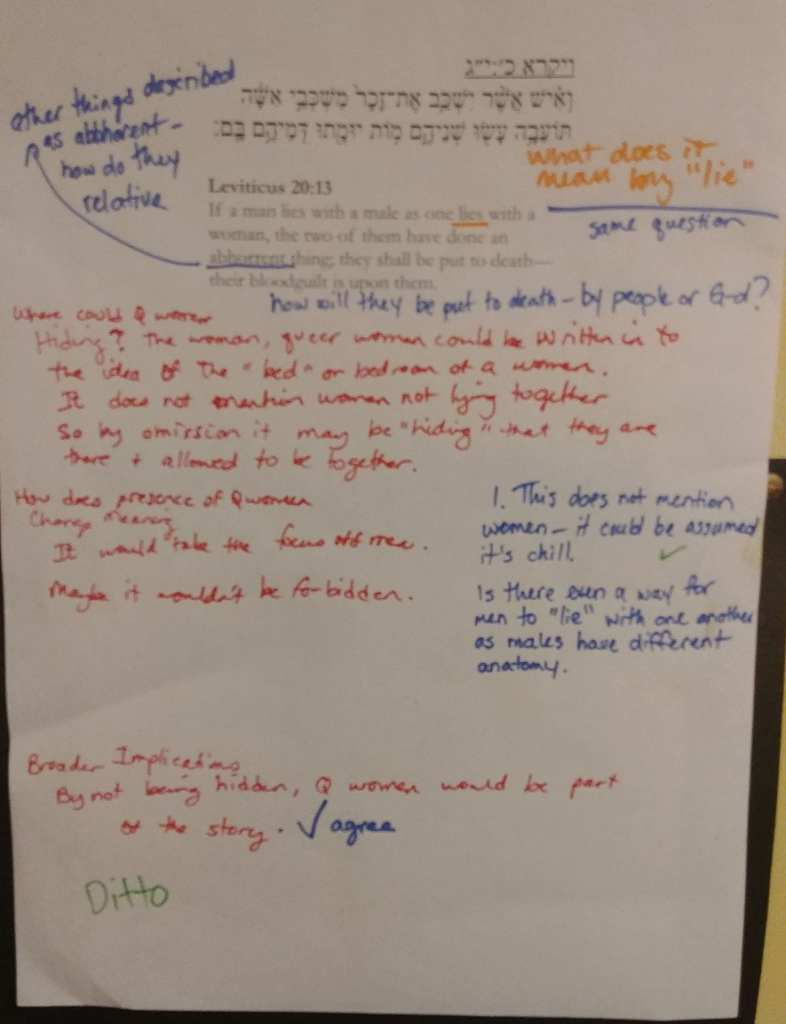 ויקרא כ׳:י״ג
וְאִ֗ישׁ אֲשֶׁ֨ר יִשְׁכַּ֤ב אֶת־זָכָר֙ מִשְׁכְּבֵ֣י אִשָּׁ֔ה
תּוֹעֵבָ֥ה עָשׂ֖וּ שְׁנֵיהֶ֑ם מ֥וֹת יוּמָ֖תוּ דְּמֵיהֶ֥ם בָּֽם׃
other things described
as abbhorent -
how do they
relative
Leviticus 20:13
If a man lies with a male as one lies with a
woman, the two of them have done an
abhorrent thing; they shall be put to death—
their bloodguilt is upon them.
what does it
mean by "lie"
same question
how will they be put to death - by people or G-d?
Where could Q women
Hiding? The woman, queer women could be written in to
the idea of the "bed" or bedroom of a women.
It does not mention women not lying together
So by omission it may be "hiding" that they are
there + allowed to be together.
How does presence of Q women
Change meaning
It would take the focus off men.
Maybe it wouldn't be forbidden.
1. This does not mention
women - it could be assumed
it's chill. ✓
Is there even a way for
men to "lie" with one another
as males have different
anatomy.
Broader Implications
By not being hidden, Q women would be part
of the story. ✓ agree
Ditto